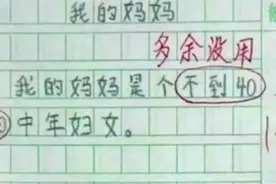 我的妈妈
多余没用
我的妈妈是个不到40
中年妇女。